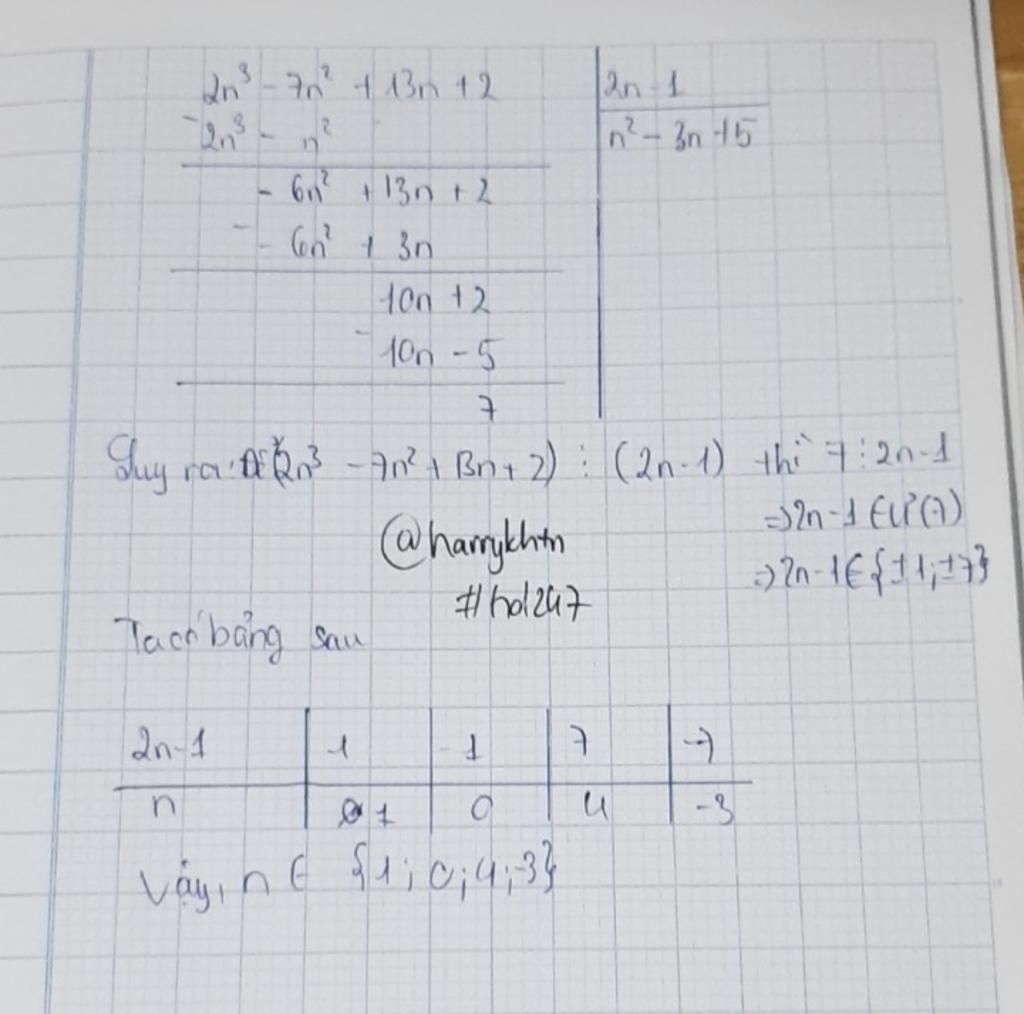 2n³ - 7n² + 13n + 2 | 2n - 1
- 2n³ - n² | n² - 3n + 5
- 6n² + 13n + 2
- - 6n² + 3n
10n + 2
- 10n - 5
7
Suy ra: Để (2n³ - 7n² + 13n + 2) ⋮ (2n - 1) thì 7 ⋮ 2n - 1
=> 2n - 1 ∈ Ư(7)
@harrykhtn
=> 2n - 1 ∈ {±1; ±7}
#hol247
Ta có bảng sau
2n - 1 | 1 | -1 | 7 | -7
n | 1 | 0 | 4 | -3
Vậy, n ∈ {1; 0; 4; -3}